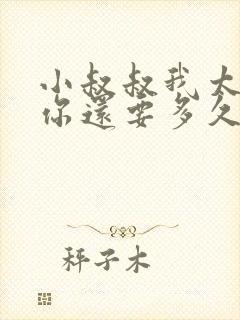 小叔叔我大
你還要多久
秤子木